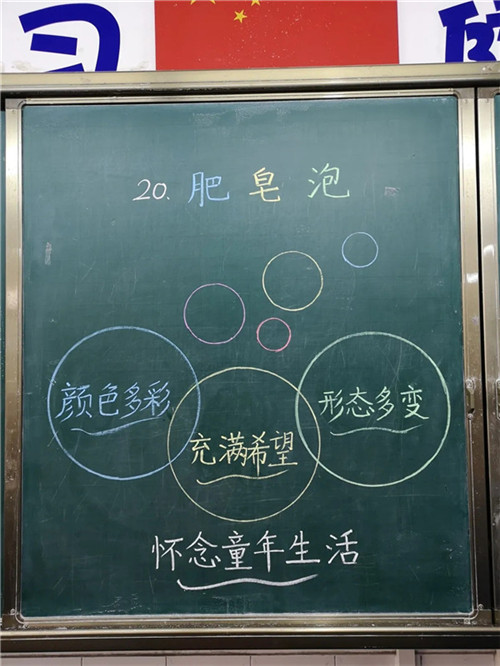 习
20、肥皂泡
颜色多彩
充满希望
形态多变
怀念童年生活